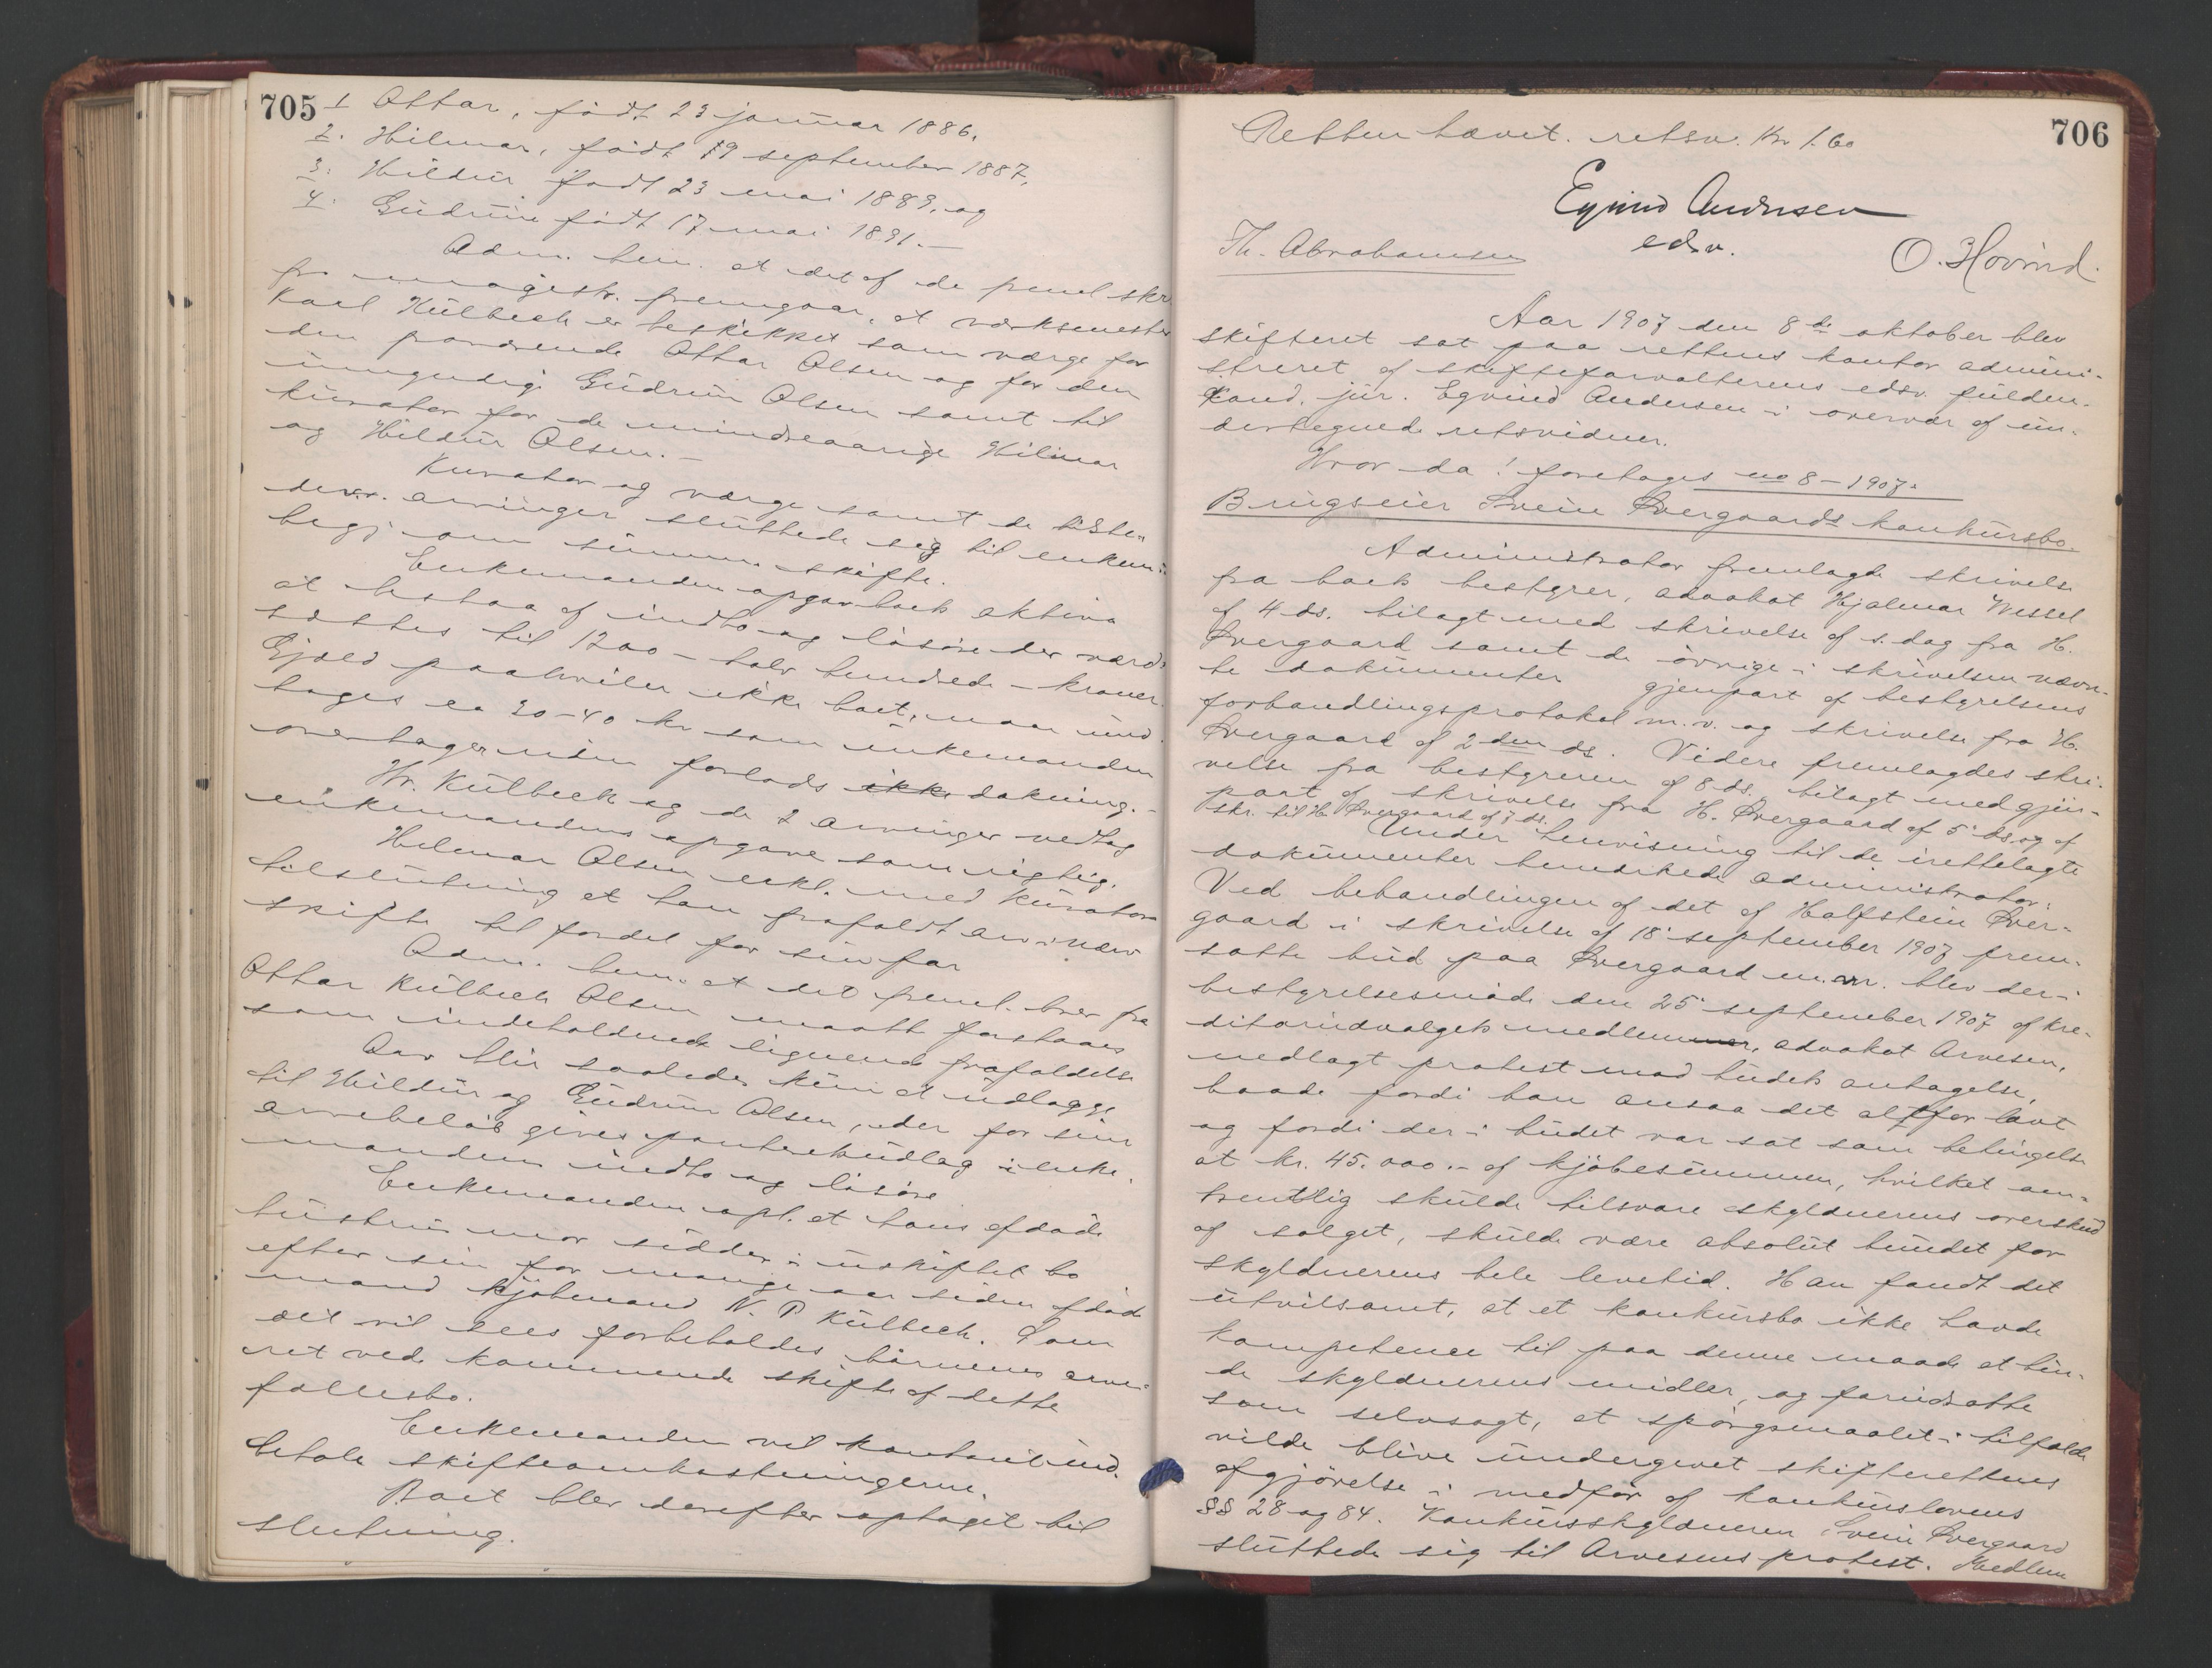 705
1 Ottar, født 23 januar 1886.
2. Hilmar, født 19 september 1887,
3. Hildur født 23 mai 1889, og
4. Gudrun født 17 mai 1891.—
Adm. bem. at det af de freml. skr.
fra magistr. fremgaar, at værksmester
Karl Külbeck er beskikket som værge for
den fraværende Ottar Olsen og for den
umyndige Gudrun Olsen samt til
kurator for de mindreaarige Hilmar
og Hildur Olsen.—
Kurator og værge samt de tilste-
dev. arvinger sluttede sig til enkem:s
begj om summ. skifte.
Enkemanden opgav boets aktiva
at bestaa af indbo og løsøre der værd-
sættes til 1200 – tolv hundrede – kroner.
Gjæld paahviler ikke boet, naar und-
tages ca 30–40 kr som enkemanden
overtager uden forlods ikke dækning.—
Hr. Külbeck og de 2 arvinger vedtog
enkemandens opgave som rigtig.
Hilmar Olsen erkl. med kurators
tilslutning at han frafaldt arv i nærv
skifte til fordel for sin far
Adm. bem. at det freml. brev fra
Ottar Külbeck Olsen maatte forstaaes
som indeholdende lignende frafaldelse
Arv blir saaledes kun at udlægge
til Hildur og Gudrun Olsen, der for sine
arvebeløb gives panteudlæg i enke-
mandens indbo og løsøre
Enkemanden opl. at hans afdøde
hustrus mor sidder i uskiftet bo
efter sin for mange aar siden afdøde
mand kjøbmand N. P. Külbeck. Som
det vil sees forbeholdes børnenes arve-
ret ved kommende skifte af dette
fællesbo.
Enkemanden vil kontant ind-
betale skifteomkostningerne.
Boet blev derefter optaget til
slutning.
706
Retten hævet. retsv. Kr 1.60
Eyvind Andersen
edsv.
Th. Abrahamsen
O. Hovind.
Aar 1907 den 8de oktober blev
skifteret sat paa rettens kontor admini-
streret af skifteforvalterens edsv. fuldm.
kand. jur. Eyvind Andersen i overvær af un-
dertegnede retsvidner.
Hvor da! foretages no 8 – 1907.
Brugseier Svein Øvergaards konkursbo.
Administrator fremlagde skrivelse
fra boets bestyrer, advokat Hjalmar Wessel
af 4 ds. bilagt med skrivelse af s. dag fra H.
Øvergaard samt de øvrige i skrivelsen nævn-
te dokumenter gjenpart af bestyrelsens
forhandlingsprotokol m.v. og skrivelse fra H.
Øvergaard af 2den ds. Videre fremlagdes skri-
velse fra bestyreren af 8 ds. bilagt med gjen-
part af skrivelse fra H. Øvergaard af 5' ds. og af
skr. til H. Øvergaard af 7 ds.
Under henvisning til de irettelagte
dokumenter bemærkede administrator:
Ved behandlingen af det af Halfstein Øver-
gaard i skrivelse af 18' september 1907 frem-
satte bud paa Øvergaard m.m. blev der i
bestyrelsesmøde den 25' september 1907 af kre-
ditorudvalgets medlemmer, advokat Arvesen,
nedlagt protest mod budets antagelse,
baade fordi han ansaa det altfor lavt
og fordi der i budet var sat som betingelse
at kr. 45.000.– af kjøbesummen, hvilket om-
trentlig skulde tilsvare skyldnerens overskud
af salget, skulde være absolut bundet for
skyldnerens hele levetid. Han fandt det
utvilsomt, at et konkursbo ikke havde
kompetence til paa denne maade at bin-
de skyldnerens midler, og forudsatte
som selvsagt, at spørgsmaalet i tilfælde
vilde blive undergivet skifterettens
afgjørelse i medfør af konkurslovens
§§ 28 og 84. Konkursskyldneren Svein Øvergaard
sluttede sig til Arvesens protest. Medlem